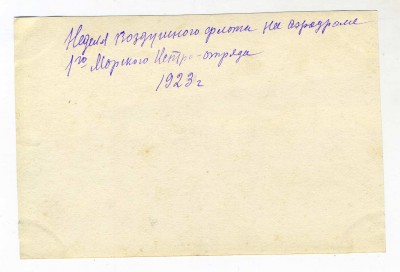 Неделя воздушного флота на аэродроме
1го Морского Истро-отряда
1923 г